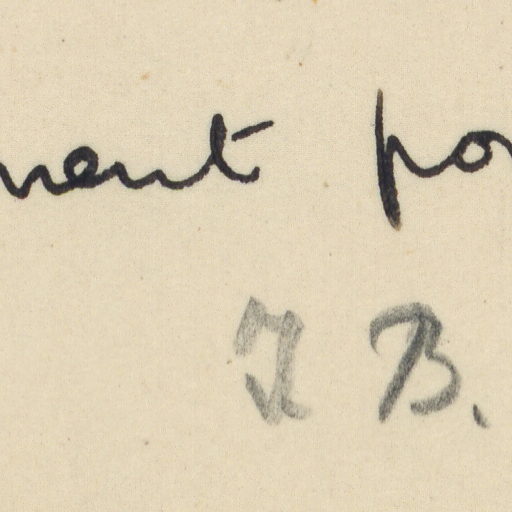 ment po
B.